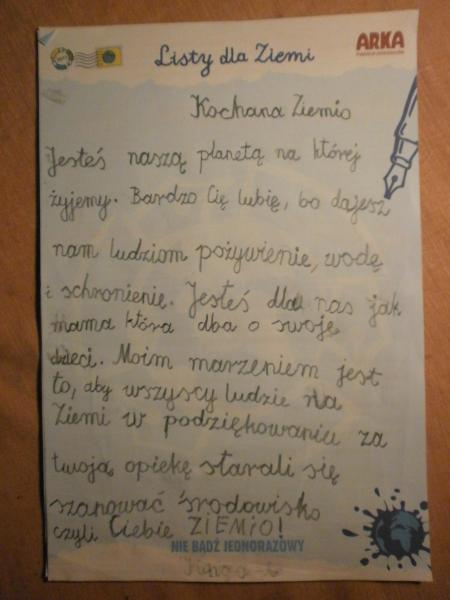 Listy dla Ziemi
ARKA
Kochana Ziemio
Jesteś naszą planetą na której
żyjemy. Bardzo Cię lubię, bo dajesz
nam ludziom pożywienie, wodę
i schronienie. Jesteś dla nas jak
mama która dba o swoje
dzieci. Moim marzeniem jest
to, aby wszyscy ludzie na
Ziemi w podziękowaniu za
twoją opiekę starali się
szanować środowisko
czyli Ciebie ZIEMIO!
NIE BĄDŹ JEDNORAZOWY